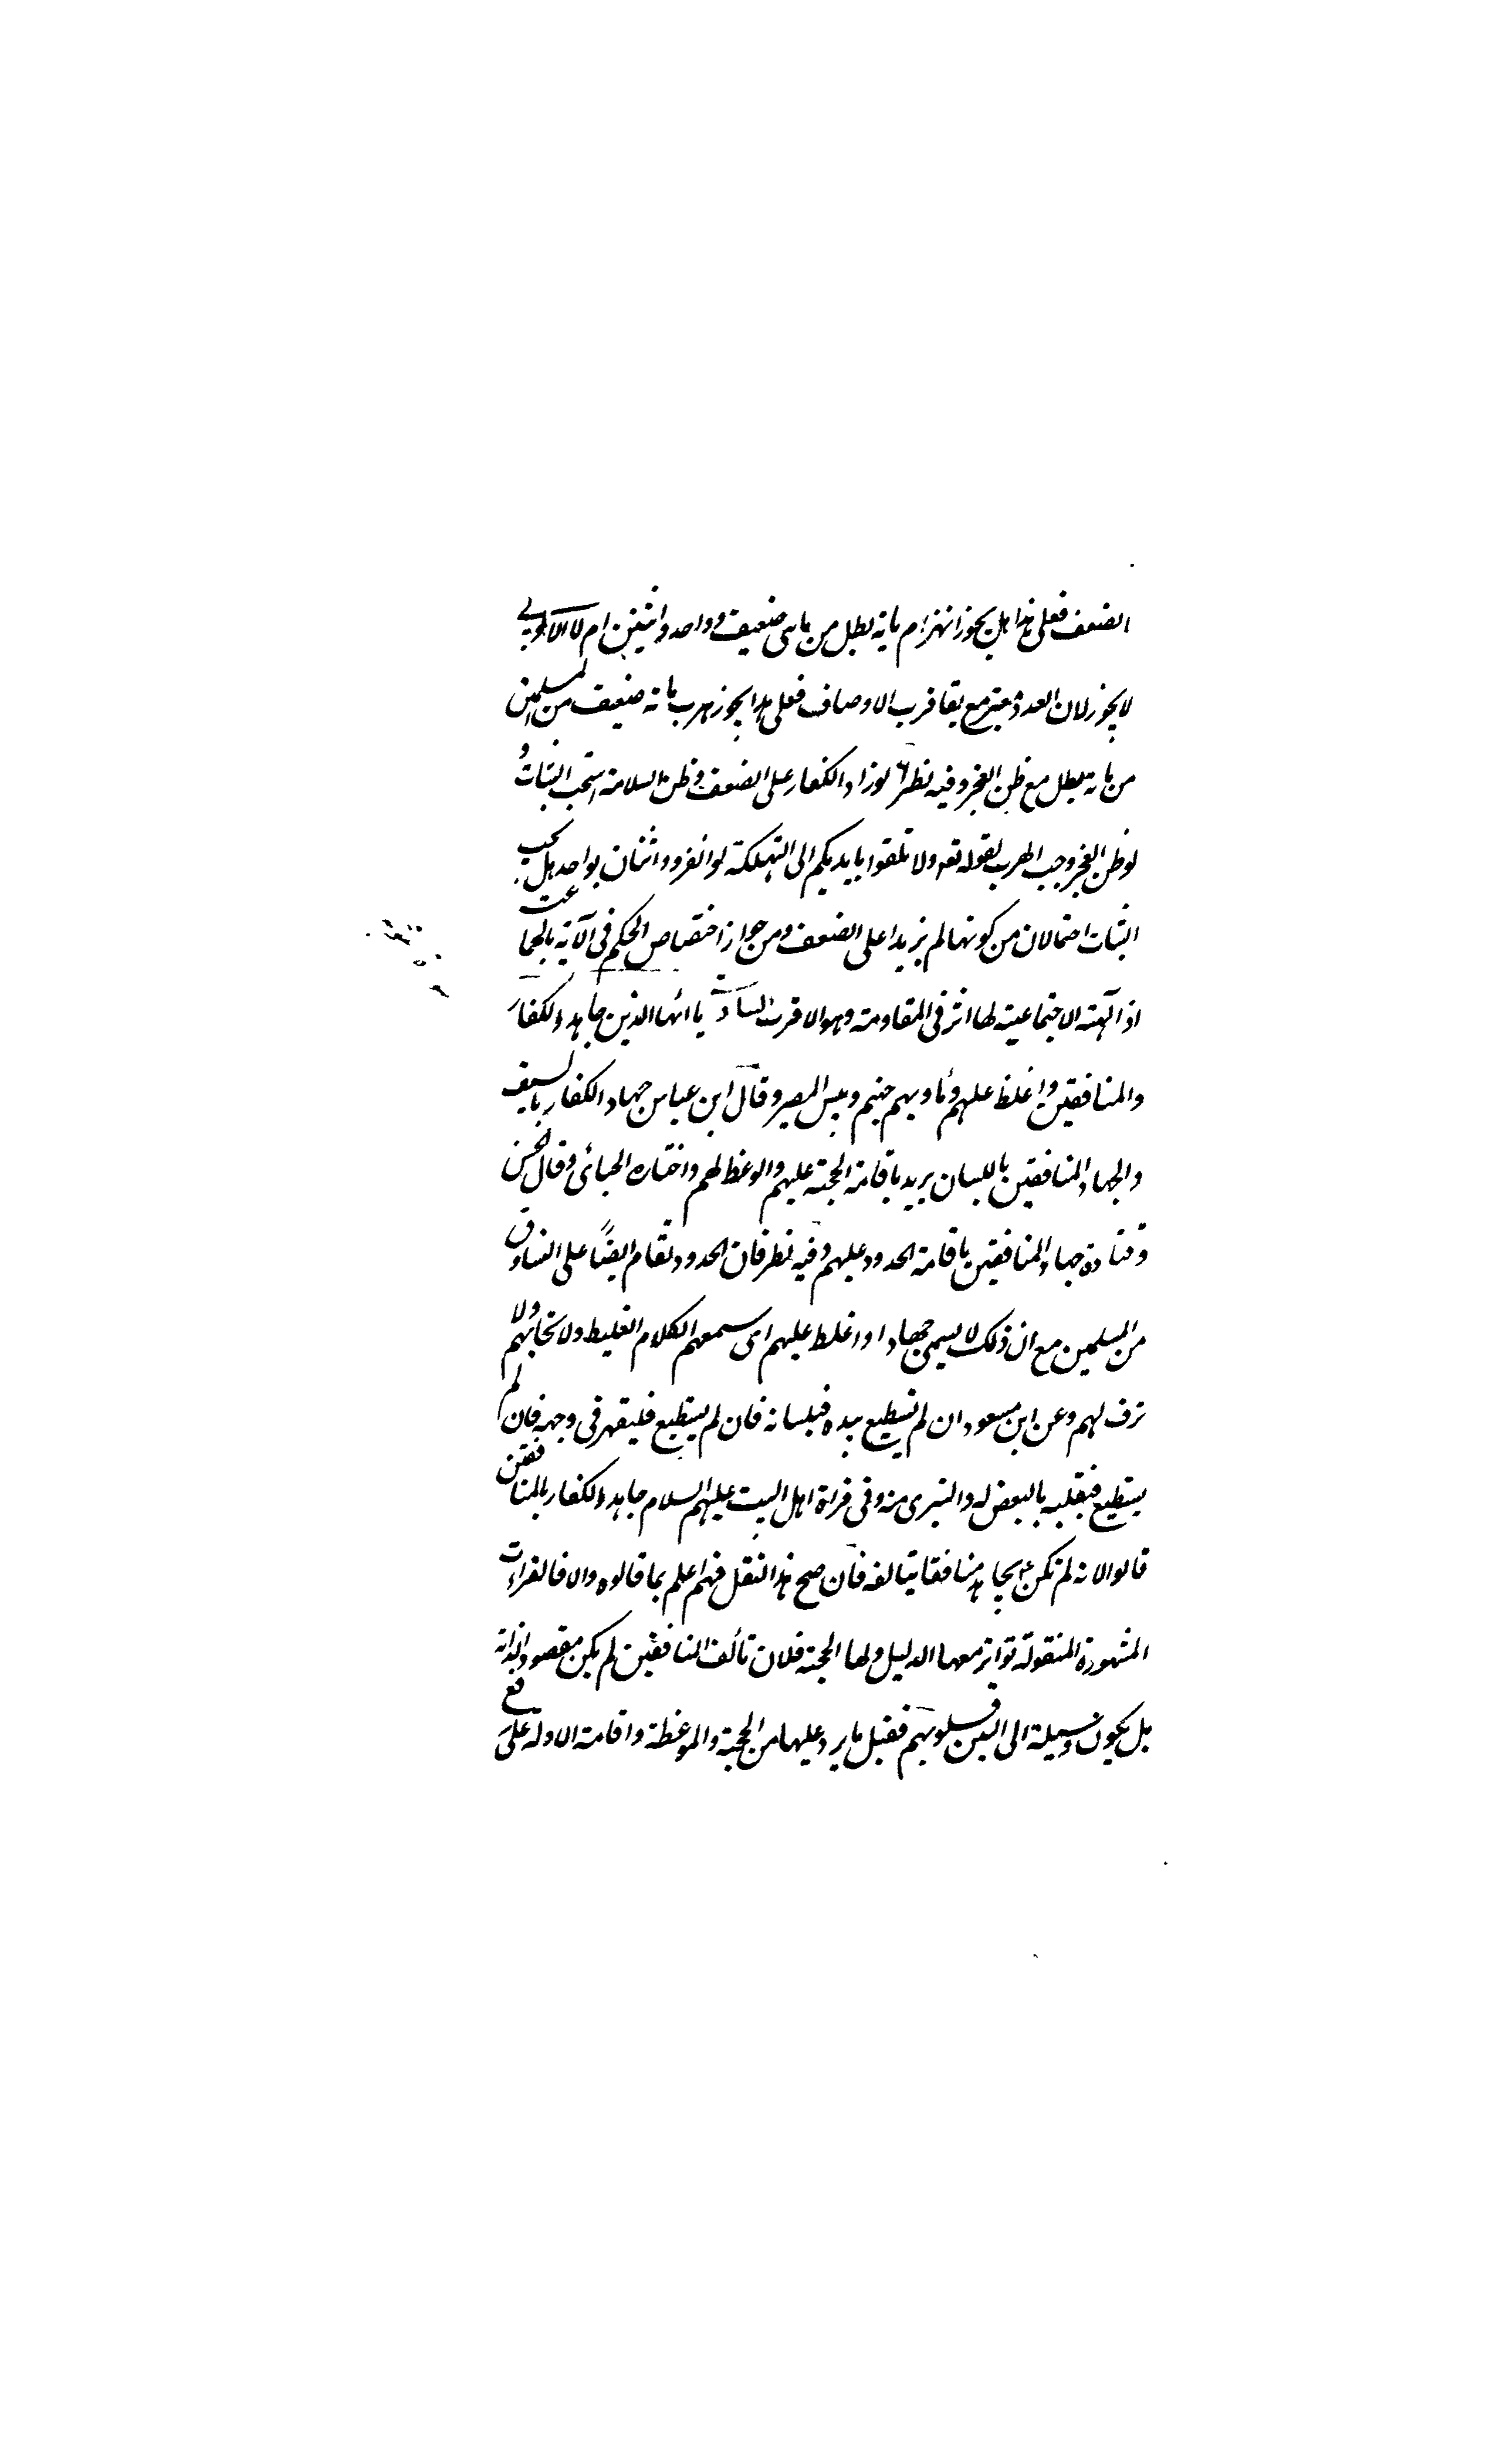 الضعف فعلى هذا هل يجوز انهزام ماية بطل من مايتى ضعيف وواحد واثنين ام لا الاولى
لا يجوز لان العدد معتبر مع تقارب الاوصاف فعلى هذا يجوز هرب ماية ضعيف من المسلمين
من ماية بطل مع ظن العجز وفيه نظر لو زاد الكفار على الضعف وظن السلامة استحب الثبات و
لو ظن العجز وجب الهرب لقوله تع ولا تلقوا بايديكم الى التهلكة لو انفرد اثنان بواحد هل يجب
الثبات احتمالان من كونهما لم يزيدا على الضعف ومن جواز اختصاص الحكم فى الآية بالجماعت
اذ الهيئة الاجتماعية لها اثر فى المقاومة وهو الاقرب يا ايها الذين جاهد الكفار
والمنافقين واغلظ عليهم وماويهم جهنم وبيس المصير وقال ابن عباس جهاد الكفار بالسيف
والجهاد المنافقين باللسان يريد باقامة الحجة عليهم والوعظ لهم واختاره الجبائى وقال الحسن
وقتادة جهاد المنافقين باقامة الحدود عليهم وفيه نظر فان الحدود تقام ايضًا على الفساق
من المسلمين مع ان ذلك لا يسمى جهادا واغلظ عليهم اى سمعهم الكلام الغليظ ولا تخابهم ولا
ترف لهم وعن ابن مسعود ان لم تستطيع بيده فبلسانه فان لم يستطيع فليقهر فى وجهه فان لم
يستطيع فبقلبه بالبعض له والتبرى منه وفى قراة اهل البيت عليهم السلام جاهد الكفار بالمنافقين
قالوا لانه لم تكن يجاهد منافقا يتالفه فان صح هذا النقل فهم اعلم بما قالوه والا فالقراءت
المشهورة المنقولة تواتر معها الدليل ولها الحجة فلان تألف المنافقين لم يكن مقصودا لذاته
بل يكون وسيلة الى قلوبهم فقبل ما يرد عليها من الحجة والموعظة واقامة الادلة على